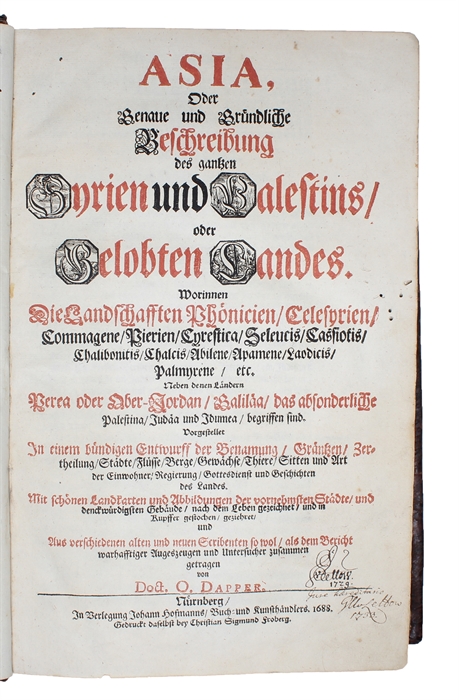 ASIA,
Oder
Genaue und Gründliche
Beschreibung
des gantzen
Syrien und Palestins/
oder
Gelobten Landes.
Worinnen
Die Landschafften Phönicien/ Celesyrien/
Commagene/ Pierien/ Cyrestica/ Seleucis/ Cassiotis/
Chalibonitis/ Chalcis/ Abilene/ Apamene/ Laodicis/
Palmyrene/ etc.
Neben denen Ländern
Perea oder Ober-Jordan/ Galiläa/ das absonderliche
Palestina/ Judäa und Idumea/ begriffen sind.
Vorgestellet
In einem bündigen Entwurff der Benamung/ Gräntzen/ Zer-
theilung/ Städte/ Flüsse/ Berge/ Gewächse/ Thiere/ Sitten und Art
der Einwohner/ Regierung/ Gottesdienst und Geschichten
des Landes.
Mit schönen Landkarten und Abbildungen der vornehmsten Städte/ und
denckwürdigsten Gebäude/ nach dem Leben gezeichnet/ und in
Kupffer gestochen/ gezieret/
und
Aus verschiedenen alten und neuen Scribenten so wol/ als dem Bericht
warhafftiger Augezeugen und Untersucher zusammen
getragen
von
Doct. O. DAPPER.
Nürnberg/
In Verlegung Johann Hofmanns/ Buch- und Kunsthändlers. 1688.
Gedruckt daselbst bey Christian Sigmund Froberg.